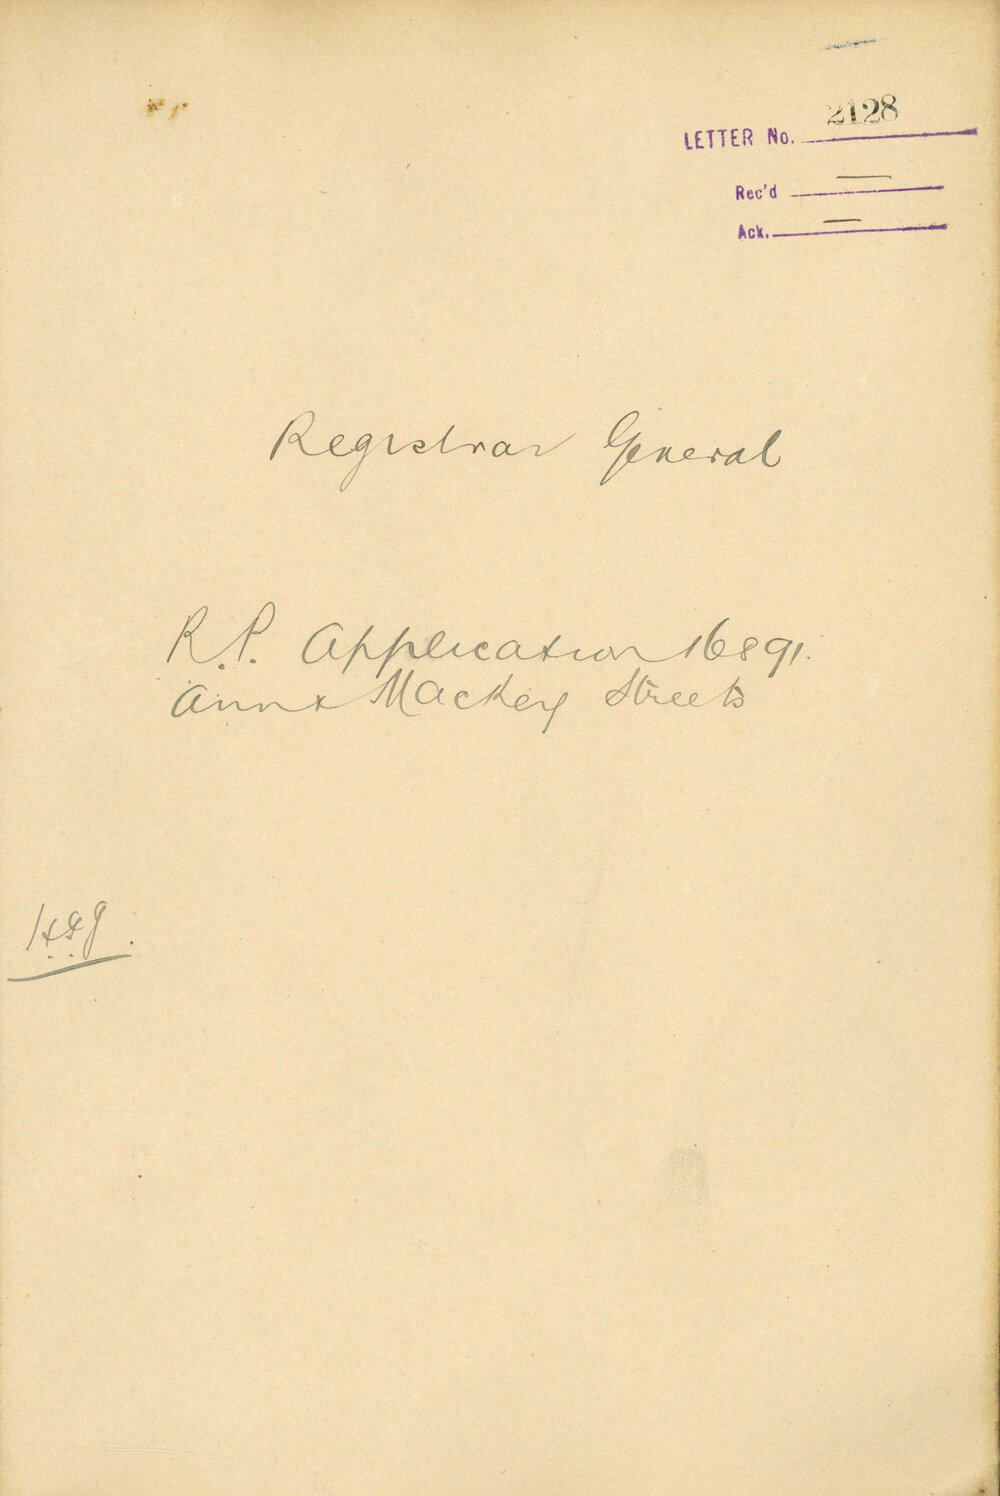 2128
LETTER No.
Rec'd —
Ack. —
Registrar General
R.P. Application 16891.
Ann & Mackey Streets